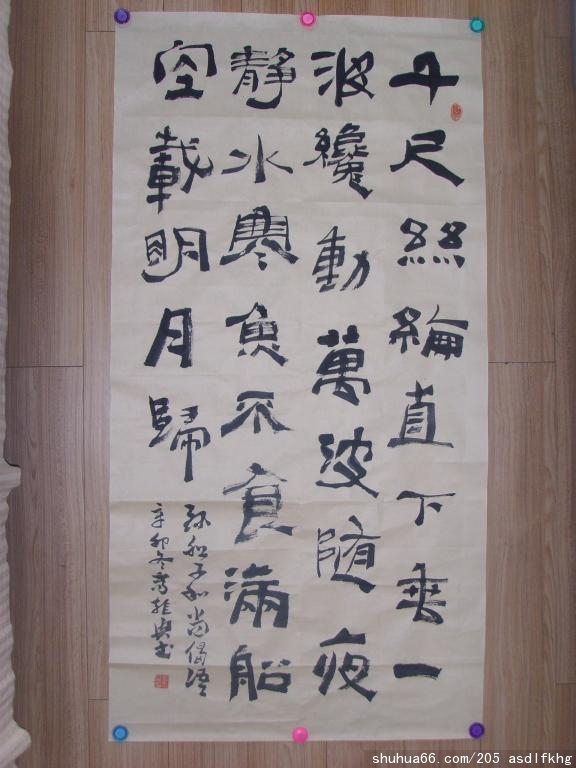 千尺絲綸直下垂一
波纔動萬波随夜
静水寒魚不食滿船
空載明月歸
船子和尚偈語
辛卯冬
書
shuhua66.com/205 asdlfkhg